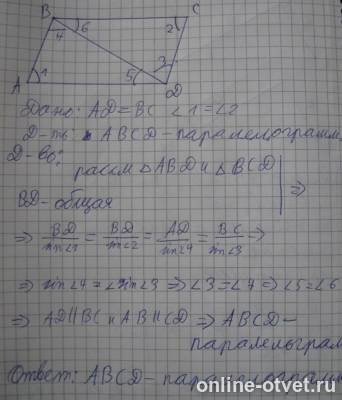 B C
6 2
4
3
1 5
A D
Дано: AD=BC ∠1=∠2
Д-ть: ABCD-паралелограмм
Д-во:
рассм △ABD и △BCD
BD-общая ⇒
⇒ BD/sin∠1 = BD/sin∠2 = AD/sin∠4 = BC/sin∠3 ⇒
⇒ sin∠4 = ∠sin∠3 ⇒ ∠3=∠4 ⇒ ∠5=∠6
⇒ AD||BC и AB||CD ⇒ ABCD-
паралелограм
Ответ: ABCD-паралелограмм
online-otvet.ru